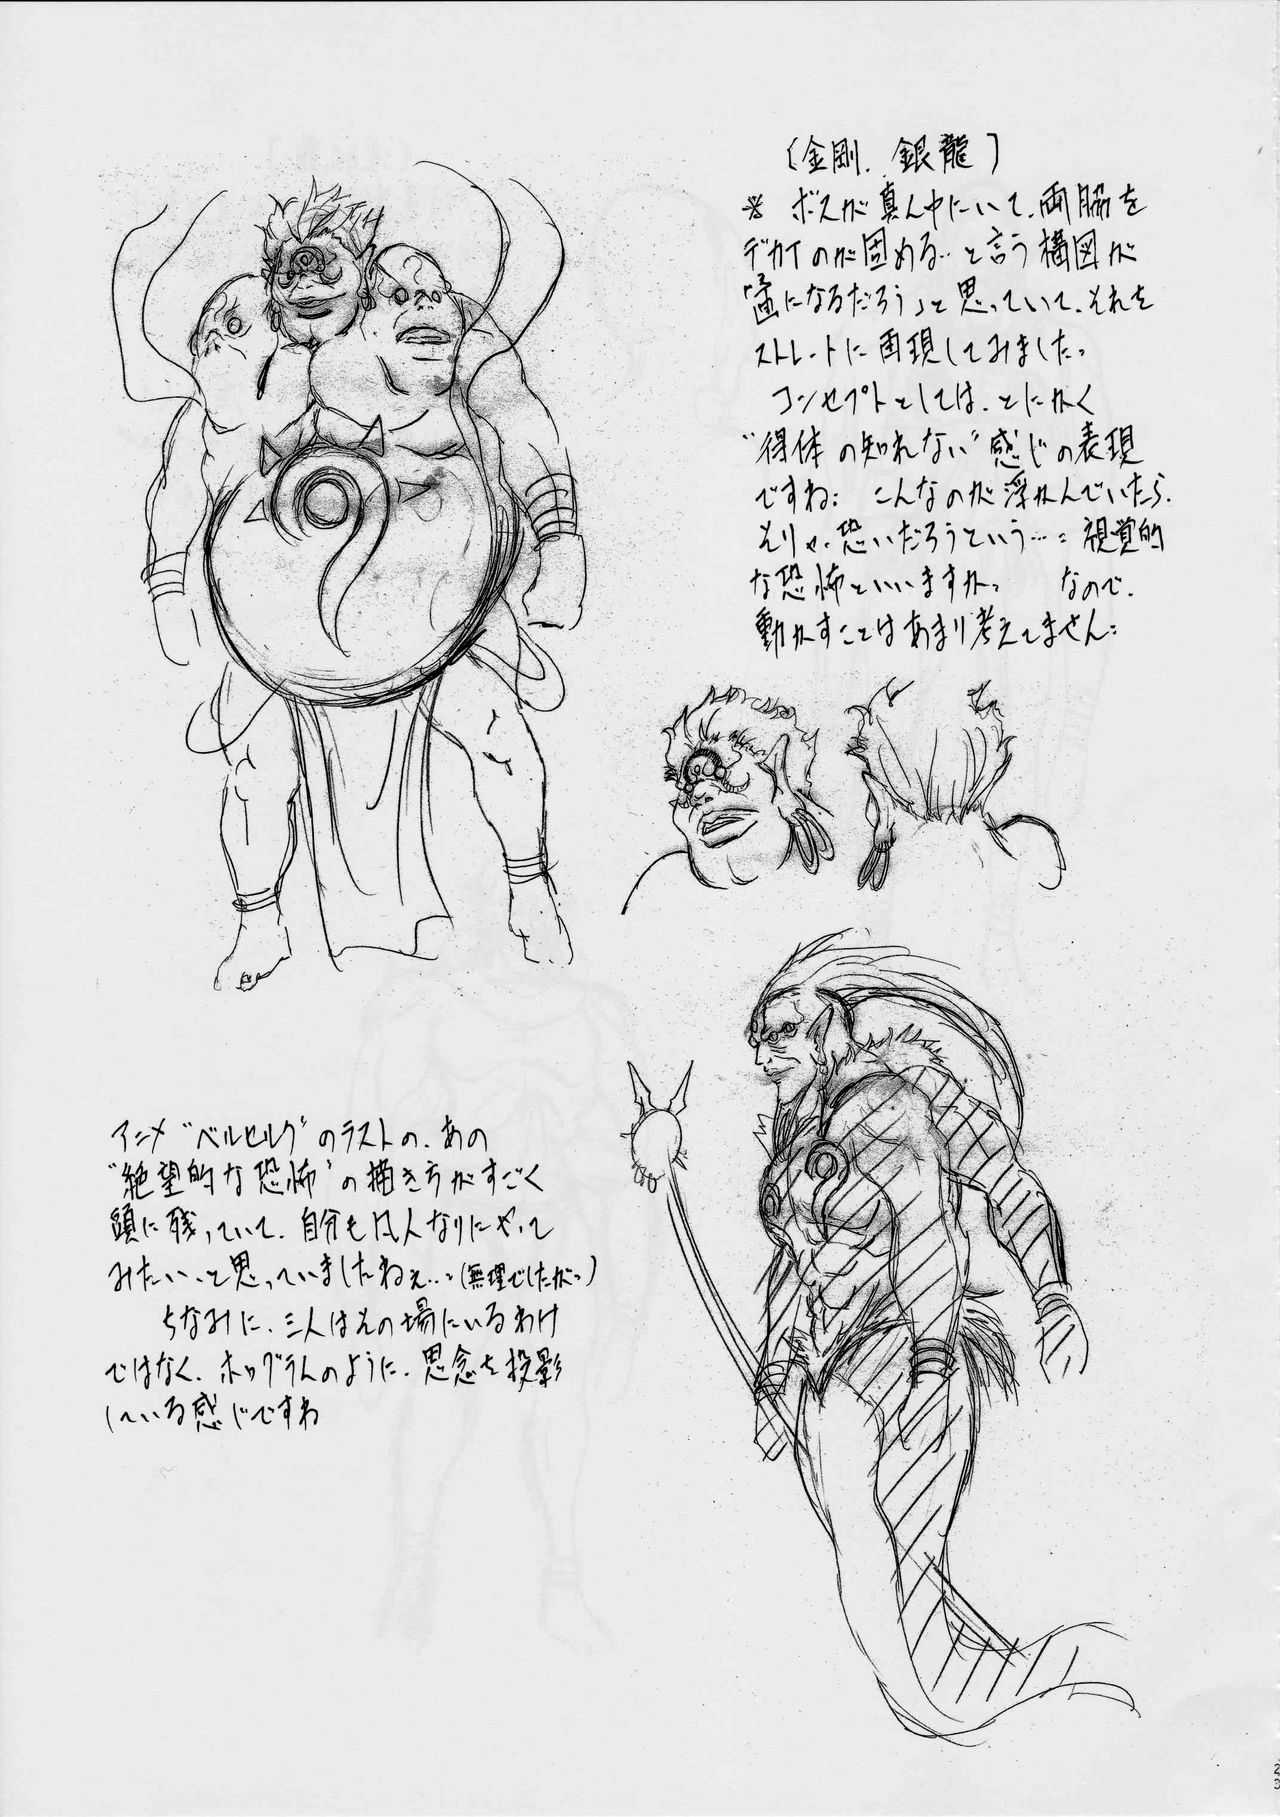 〔金剛、銀龍〕
※ ボスが真ん中にいて、両脇を
デカイのが固める…と言う構図が
「画になるだろう」と思っていて、それを
ストレートに再現してみました。
コンセプトとしては、とにかく
"得体の知れない"感じの表現
ですね： こんなのが浮かんでいたら、
そりゃ、恐いだろうという…： 視覚的
な恐怖といいますか。 なので、
動かすことはあまり考えてません：
アニメ"ベルセルク"のラストの、あの
"絶望的な恐怖"の描き方がすごく
頭に残っていて、自分も凡人なりにやって
みたい、と思っていましたねぇ…。(無理でしたが。)
ちなみに、三人はその場にいるわけ
ではなく、ホログラムのように、思念を投影
している感じですね